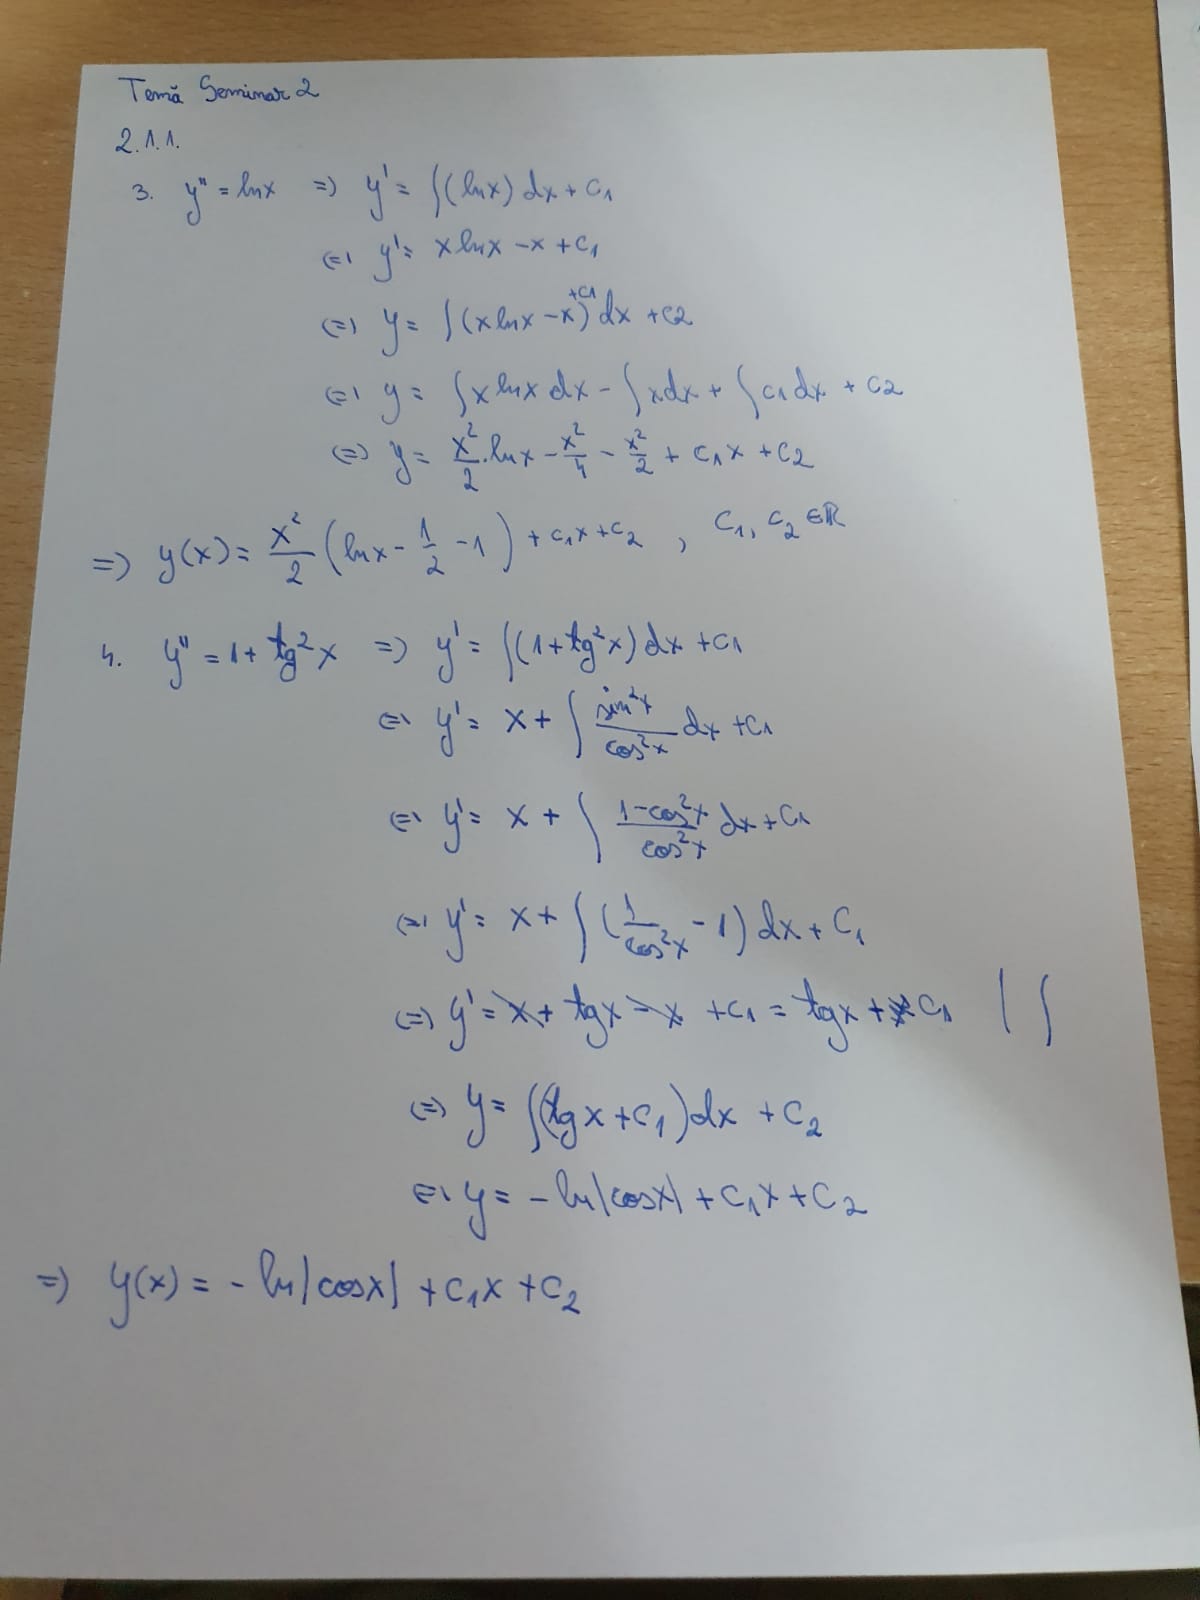 Temă Seminar 2
2.1.1.
3. y'' = lnx => y' = ∫(lnx) dx + C1
<=> y' = x lnx - x + C1
<=> y = ∫(x lnx - x + C1) dx + C2
<=> y = ∫x lnx dx - ∫xdx + ∫C1 dx + C2
<=> y = x²/2 · lnx - x²/4 - x²/2 + C1x + C2
=> y(x) = x²/2 (lnx - 1/2 - 1) + C1x + C2 , C1, C2 ∈ ℝ
4. y'' = 1 + tg²x => y' = ∫(1 + tg²x) dx + C1
<=> y' = x + ∫ sin²x/cos²x dx + C1
<=> y' = x + ∫ 1-cos²x/cos²x dx + C1
<=> y' = x + ∫ (1/cos²x - 1) dx + C1
<=> y' = x + tgx - x + C1 = tgx + C1 | ∫
<=> y = ∫(tgx + C1) dx + C2
<=> y = - ln|cosx| + C1x + C2
=> y(x) = - ln|cosx| + C1x + C2